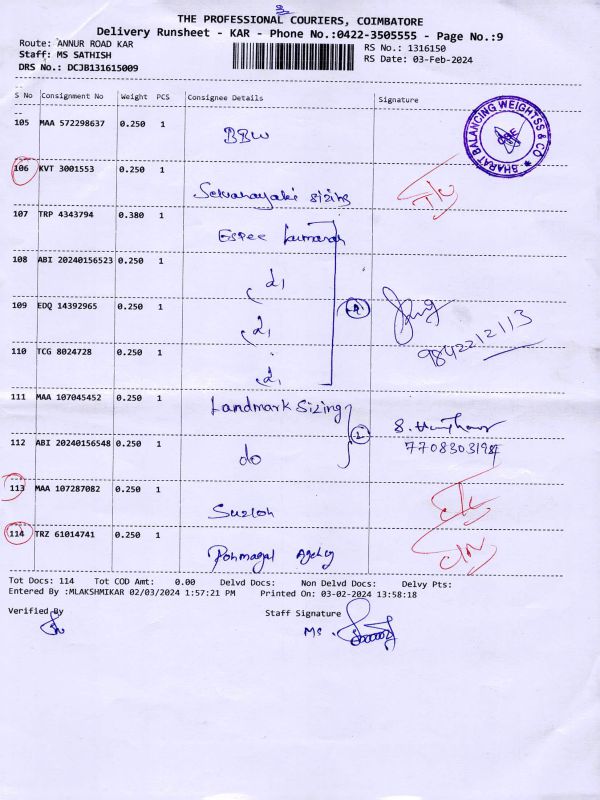 3
THE PROFESSIONAL COURIERS, COIMBATORE
Delivery Runsheet - KAR - Phone No.:0422-3505555 - Page No.:9
Route: ANNUR ROAD KAR
RS No.: 1316150
Staff: MS SATHISH
RS Date: 03-Feb-2024
DRS No.: DCJB131615009
S No Consignment No Weight PCS Consignee Details Signature
105 MAA 572298637 0.250 1 BBW
BHARAT BALANCING WEIGHTSS & CO
106 KVT 3001553 0.250 1 Selvanayaki Sizing
107 TRP 4343794 0.380 1 Espee
108 ABI 20240156523 0.250 1
109 EDQ 14392965 0.250 1
9842212113
110 TCG 8024728 0.250 1
111 MAA 107045452 0.250 1 Landmark Sizing
112 ABI 20240156548 0.250 1 do 2
113 MAA 107287082 0.250 1 Suzloh
114 TRZ 61014741 0.250 1 Ponmagal Agency
Tot Docs: 114 Tot COD Amt: 0.00 Delvd Docs: Non Delvd Docs: Delvy Pts:
Entered By :MLAKSHMIKAR 02/03/2024 1:57:21 PM Printed On: 03-02-2024 13:58:18
Verified By Staff Signature
MS.